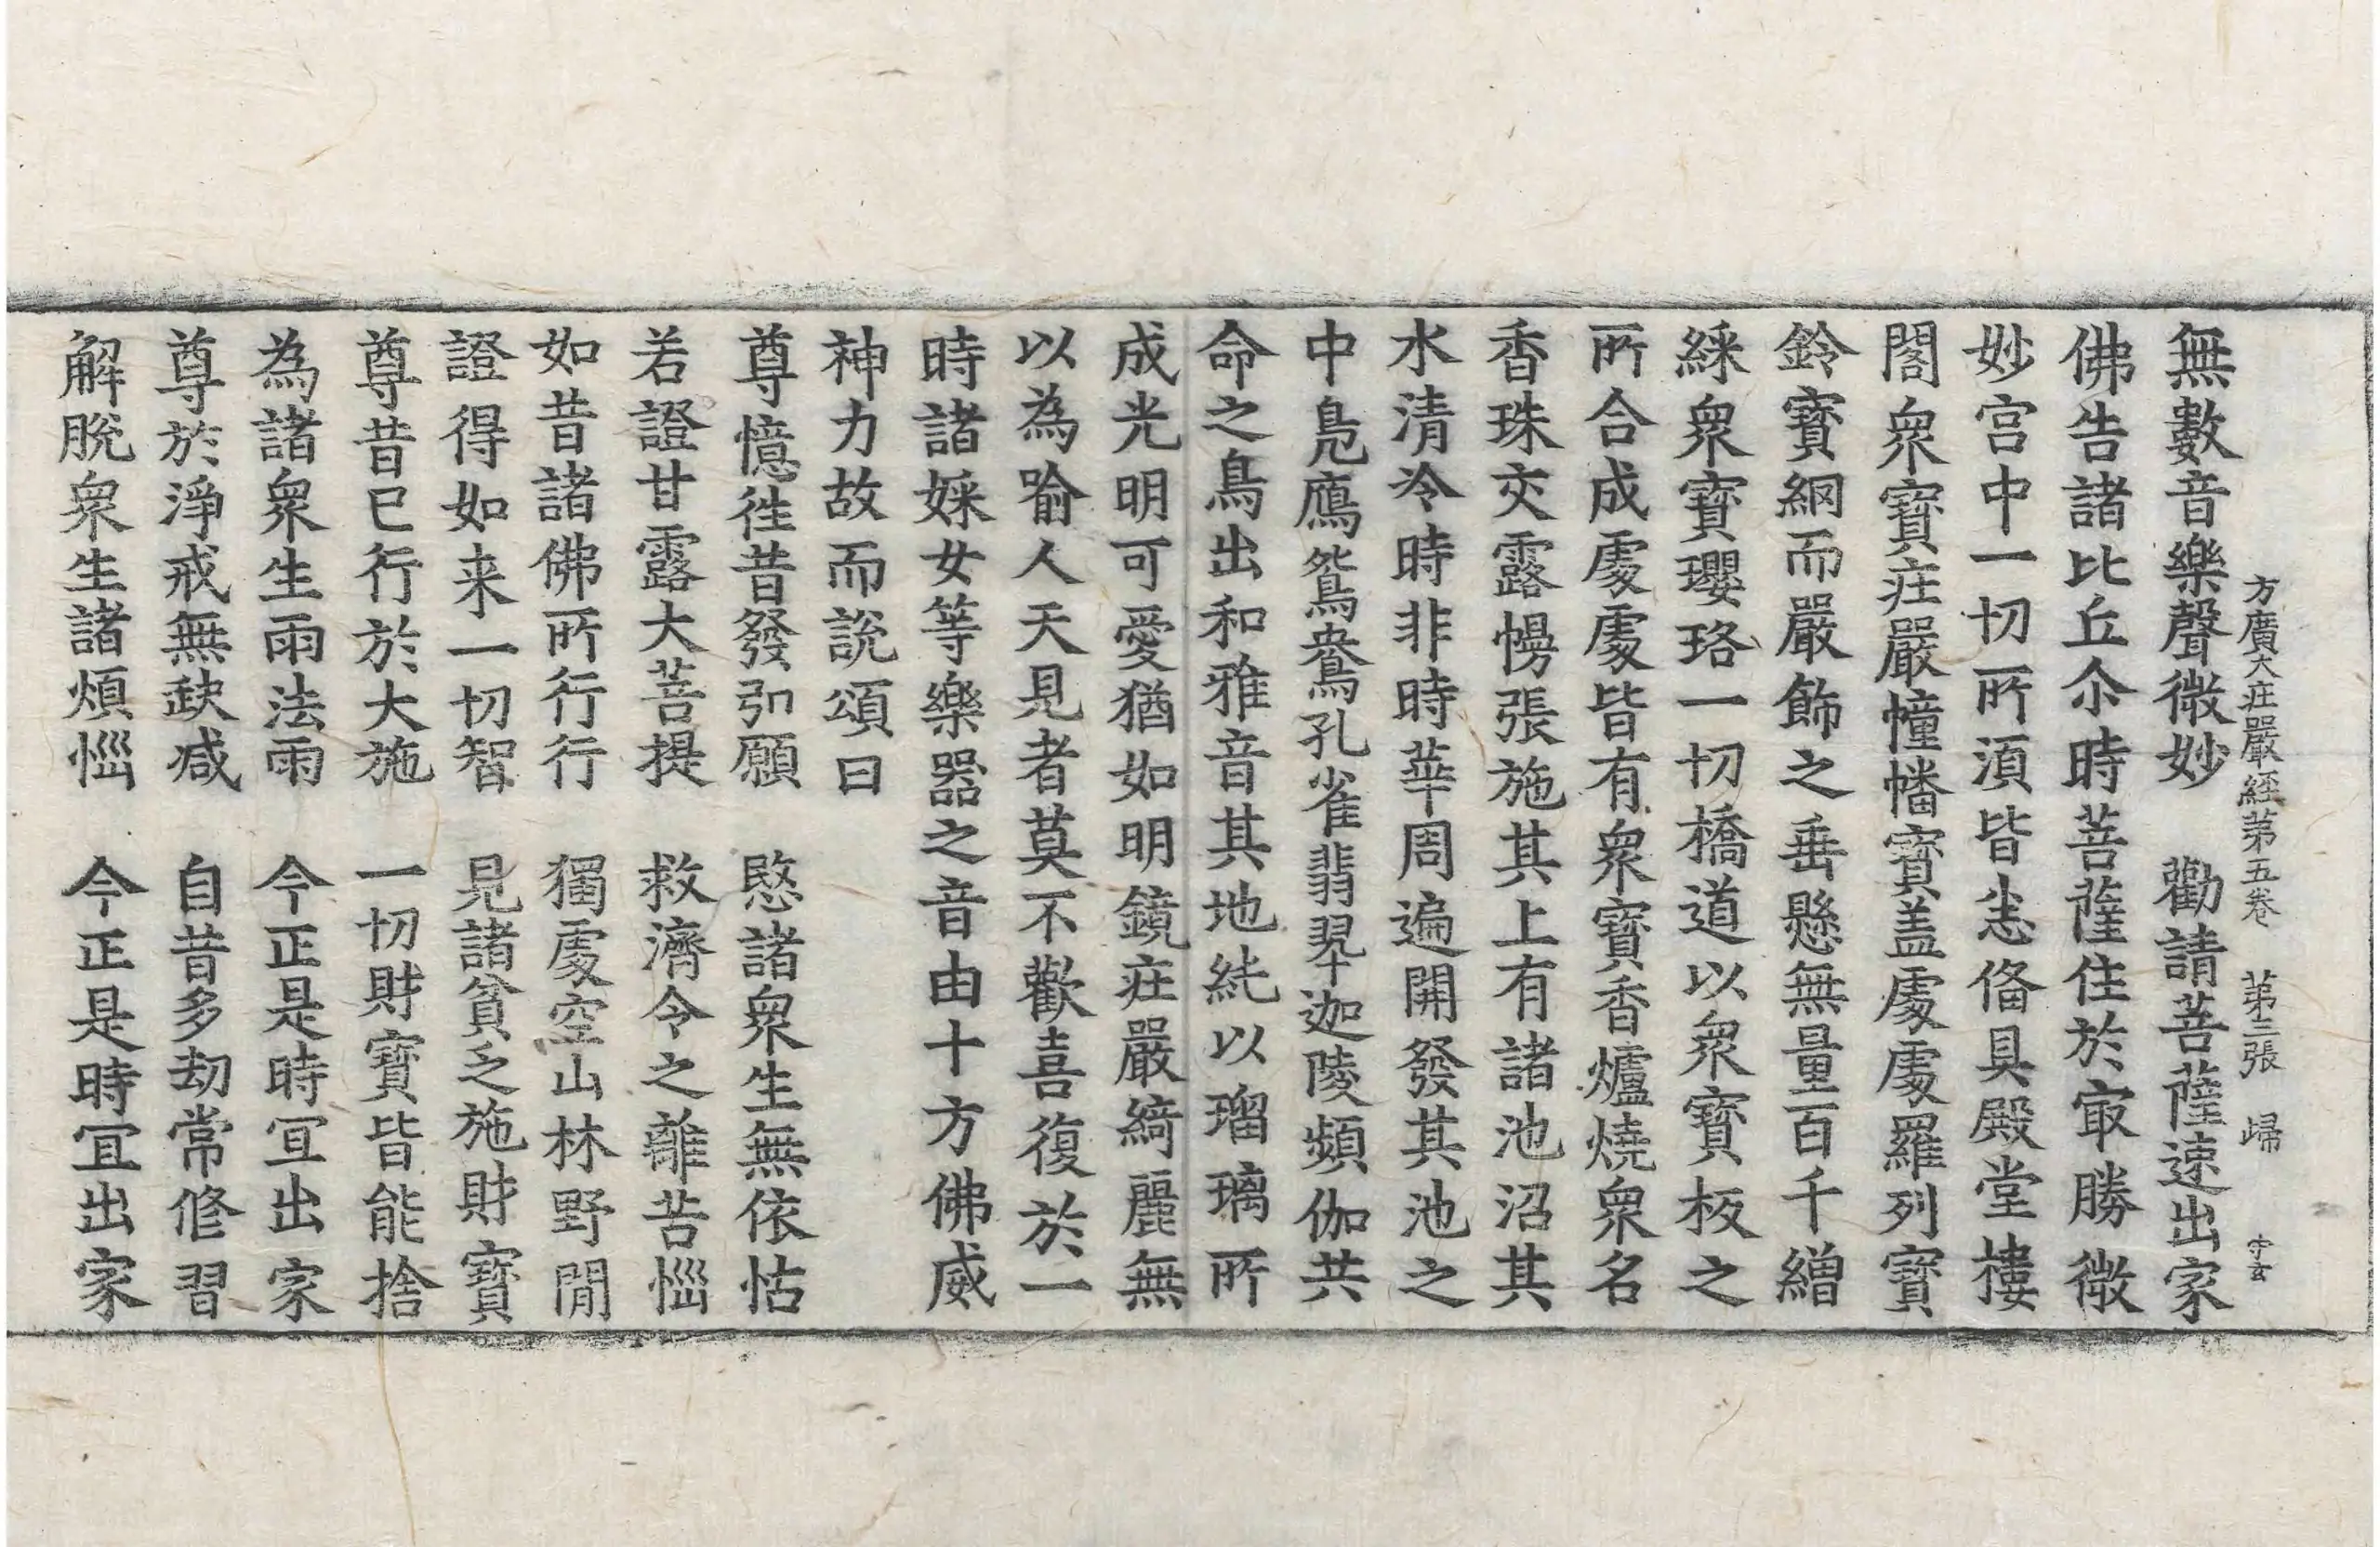 方廣大庄嚴經第五卷　第三張　歸
無數音樂聲微妙　勸請菩薩速出家
佛告諸比丘尒時菩薩住於㝡勝微
妙宮中一切所湏皆悉俻具殿堂樓
閣衆寶莊嚴幢幡寶盖䖏䖏羅列寶
鈴寶網而嚴飾之垂懸無量百千繒
綵衆寶瓔珞一切橋道以衆寶板之
所合成䖏䖏皆有衆寶香爐燒衆名
香珠交露幔張施其上有諸池沼其
水清冷時非時華周遍開發其池之
中鳧鴈鴛鴦孔雀翡翠迦陵頻伽共
命之鳥出和雅音其地純以瑠璃所
成光明可愛猶如明鏡莊嚴綺麗無
以為喻人天見者莫不歡喜復於一
時諸婇女等樂器之音由十方佛威
神力故而說頌曰
尊憶徃昔發弘願　愍諸衆生無依怙
若證甘露大菩提　救濟令之離苦惱
如昔諸佛所行行　獨䖏空山林野閒
證得如来一切智　見諸貧乏施財寶
尊昔已行於大施　一切財寶皆能捨
為諸衆生雨法雨　今正是時冝出家
尊於淨戒無缺减　自昔多劫常修習
解脫衆生諸煩惱　今正是時冝出家